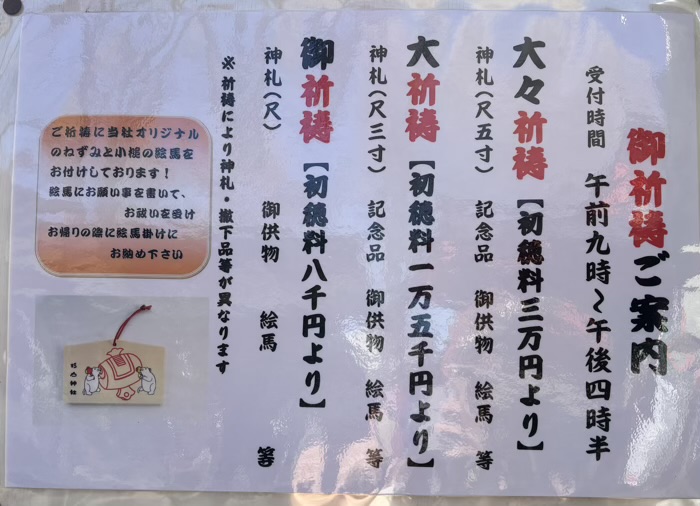 御祈祷ご案内
受付時間 午前九時～午後四時半
大々祈祷【初穂料三万円より】
神札(尺五寸) 記念品 御供物 絵馬 等
大祈祷【初穂料一万五千円より】
神札(尺三寸) 記念品 御供物 絵馬 等
御祈祷【初穂料八千円より】
神札(尺) 御供物 絵馬 等
※祈祷により神札・撤下品等が異なります
ご祈祷に当社オリジナル
のねずみと小槌の絵馬を
お付けしております!
絵馬にお願い事を書いて、
お祓いを受け
お帰りの際に絵馬掛けに
お納め下さい